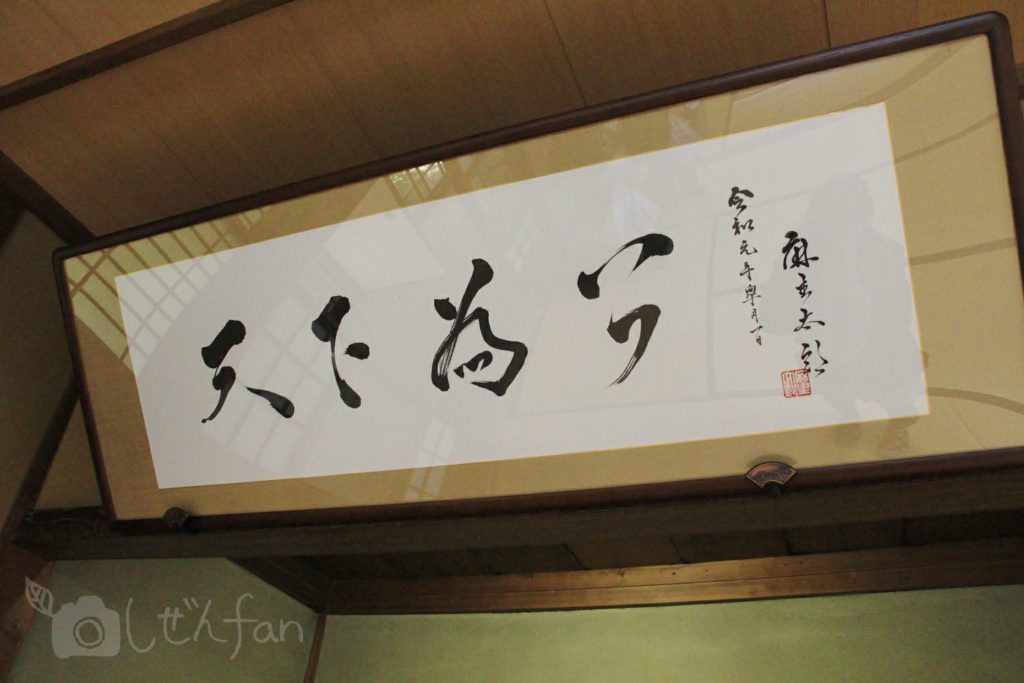 天下為公
令和元年皐月一日
麻生太郎
しぜんfan